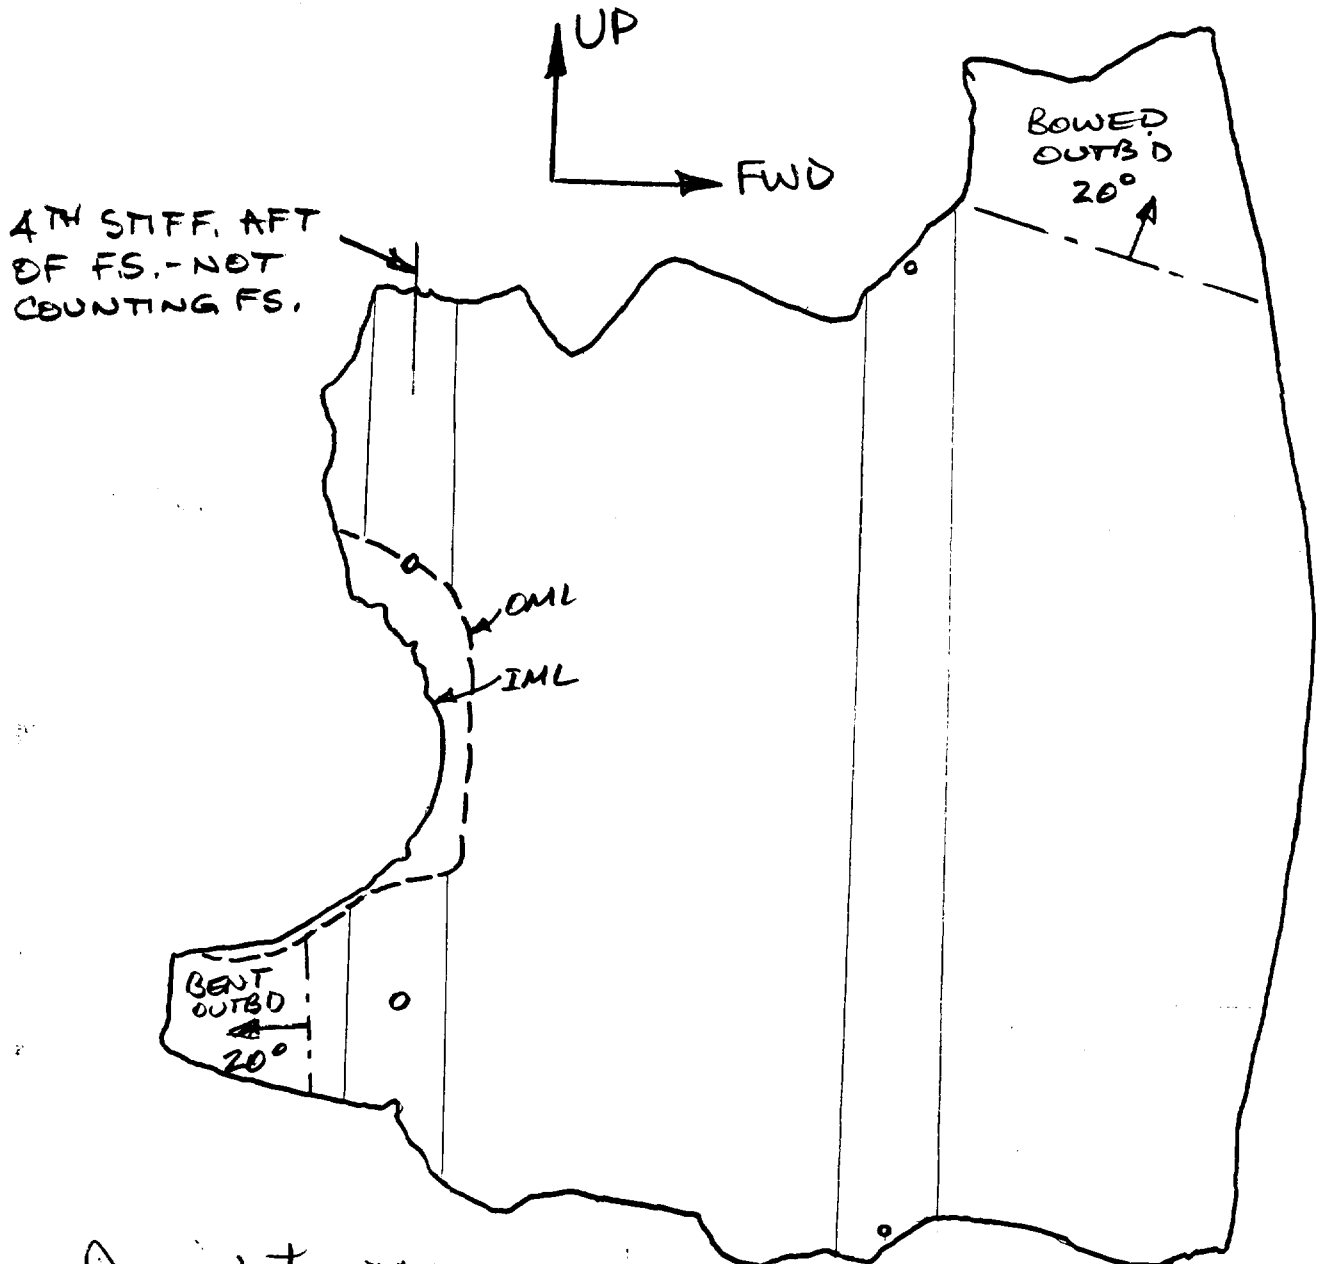 UP
FWD
BOWED
OUTB'D
20°
4TH STIFF. AFT
OF F.S.-NOT
COUNTING FS.
OML
IML
BENT
OUTBD
20°